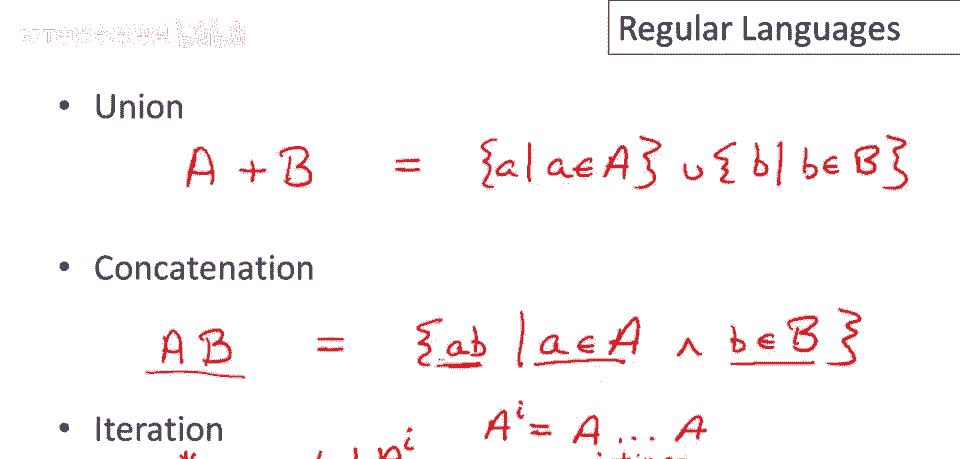 Regular Languages
• Union
A + B = {a | a ∈ A} ∪ {b | b ∈ B}
• Concatenation
AB = {ab | a ∈ A ∧ b ∈ B}
• Iteration
Aⁱ = A ... A